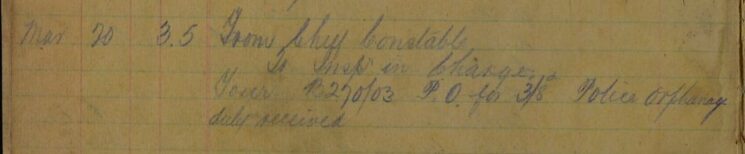 Mar 20 3.5 From Chief Constable
To Insp in Charge
Your B270/03 P.O. for 3/8 Police Orphanage
duly received